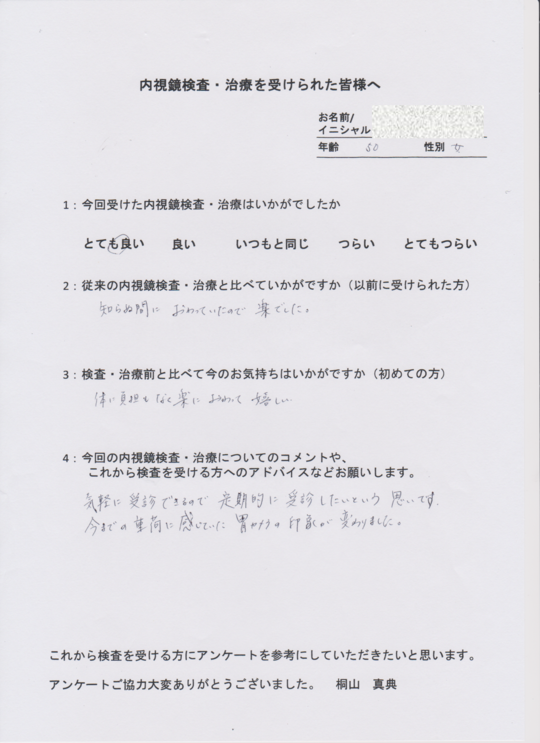 内視鏡検査・治療を受けられた皆様へ
お名前/
イニシャル
年齢 50 性別 女
1：今回受けた内視鏡検査・治療はいかがでしたか
とても良い 良い いつもと同じ つらい とてもつらい
2：従来の内視鏡検査・治療と比べていかがですか（以前に受けられた方）
知らぬ間に おわっていたので 楽でした。
3：検査・治療前と比べて今のお気持ちはいかがですか（初めての方）
体に負担もなく楽に おわって 嬉しい
4：今回の内視鏡検査・治療についてのコメントや、
これから検査を受ける方へのアドバイスなどお願いします。
気軽に 受診できるので 定期的に 受診したいという 思いです.
今までの重荷に感じていた 胃カメラの印象が 変わりました。
これから検査を受ける方にアンケートを参考にしていただきたいと思います。
アンケートご協力大変ありがとうございました。 桐山 真典